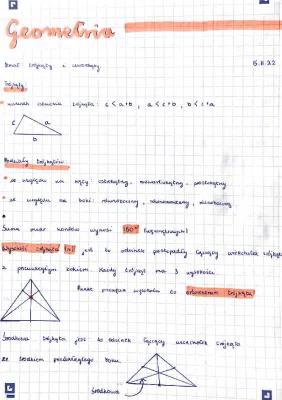 Geometria
Dział trójkąty i czworokąty 15.11.22
Trójkąty
warunek istnienia trójkąta: c < a+b, a < c+b, b < c+a
c a
b
Podział trójkątów
ze względu na kąty: ostrokątny, rozwartokątny, prostokątny
ze względu na boki: równoboczny, równoramienny, różnoboczny
Suma miar kątów wynosi 180° (wewnętrznych)
Wysokość trójkąta (h) jest to odcinek prostopadły łączący wierzchołek trójkąta
z przeciwległym bokiem. Każdy trójkąt ma 3 wysokości
Punkt przecięcia wysokości to ortocentrum trójkąta
Środkowa trójkąta jest to odcinek łączący wierzchołek trójkąta
ze środkiem przeciwległego boku.
środkowa